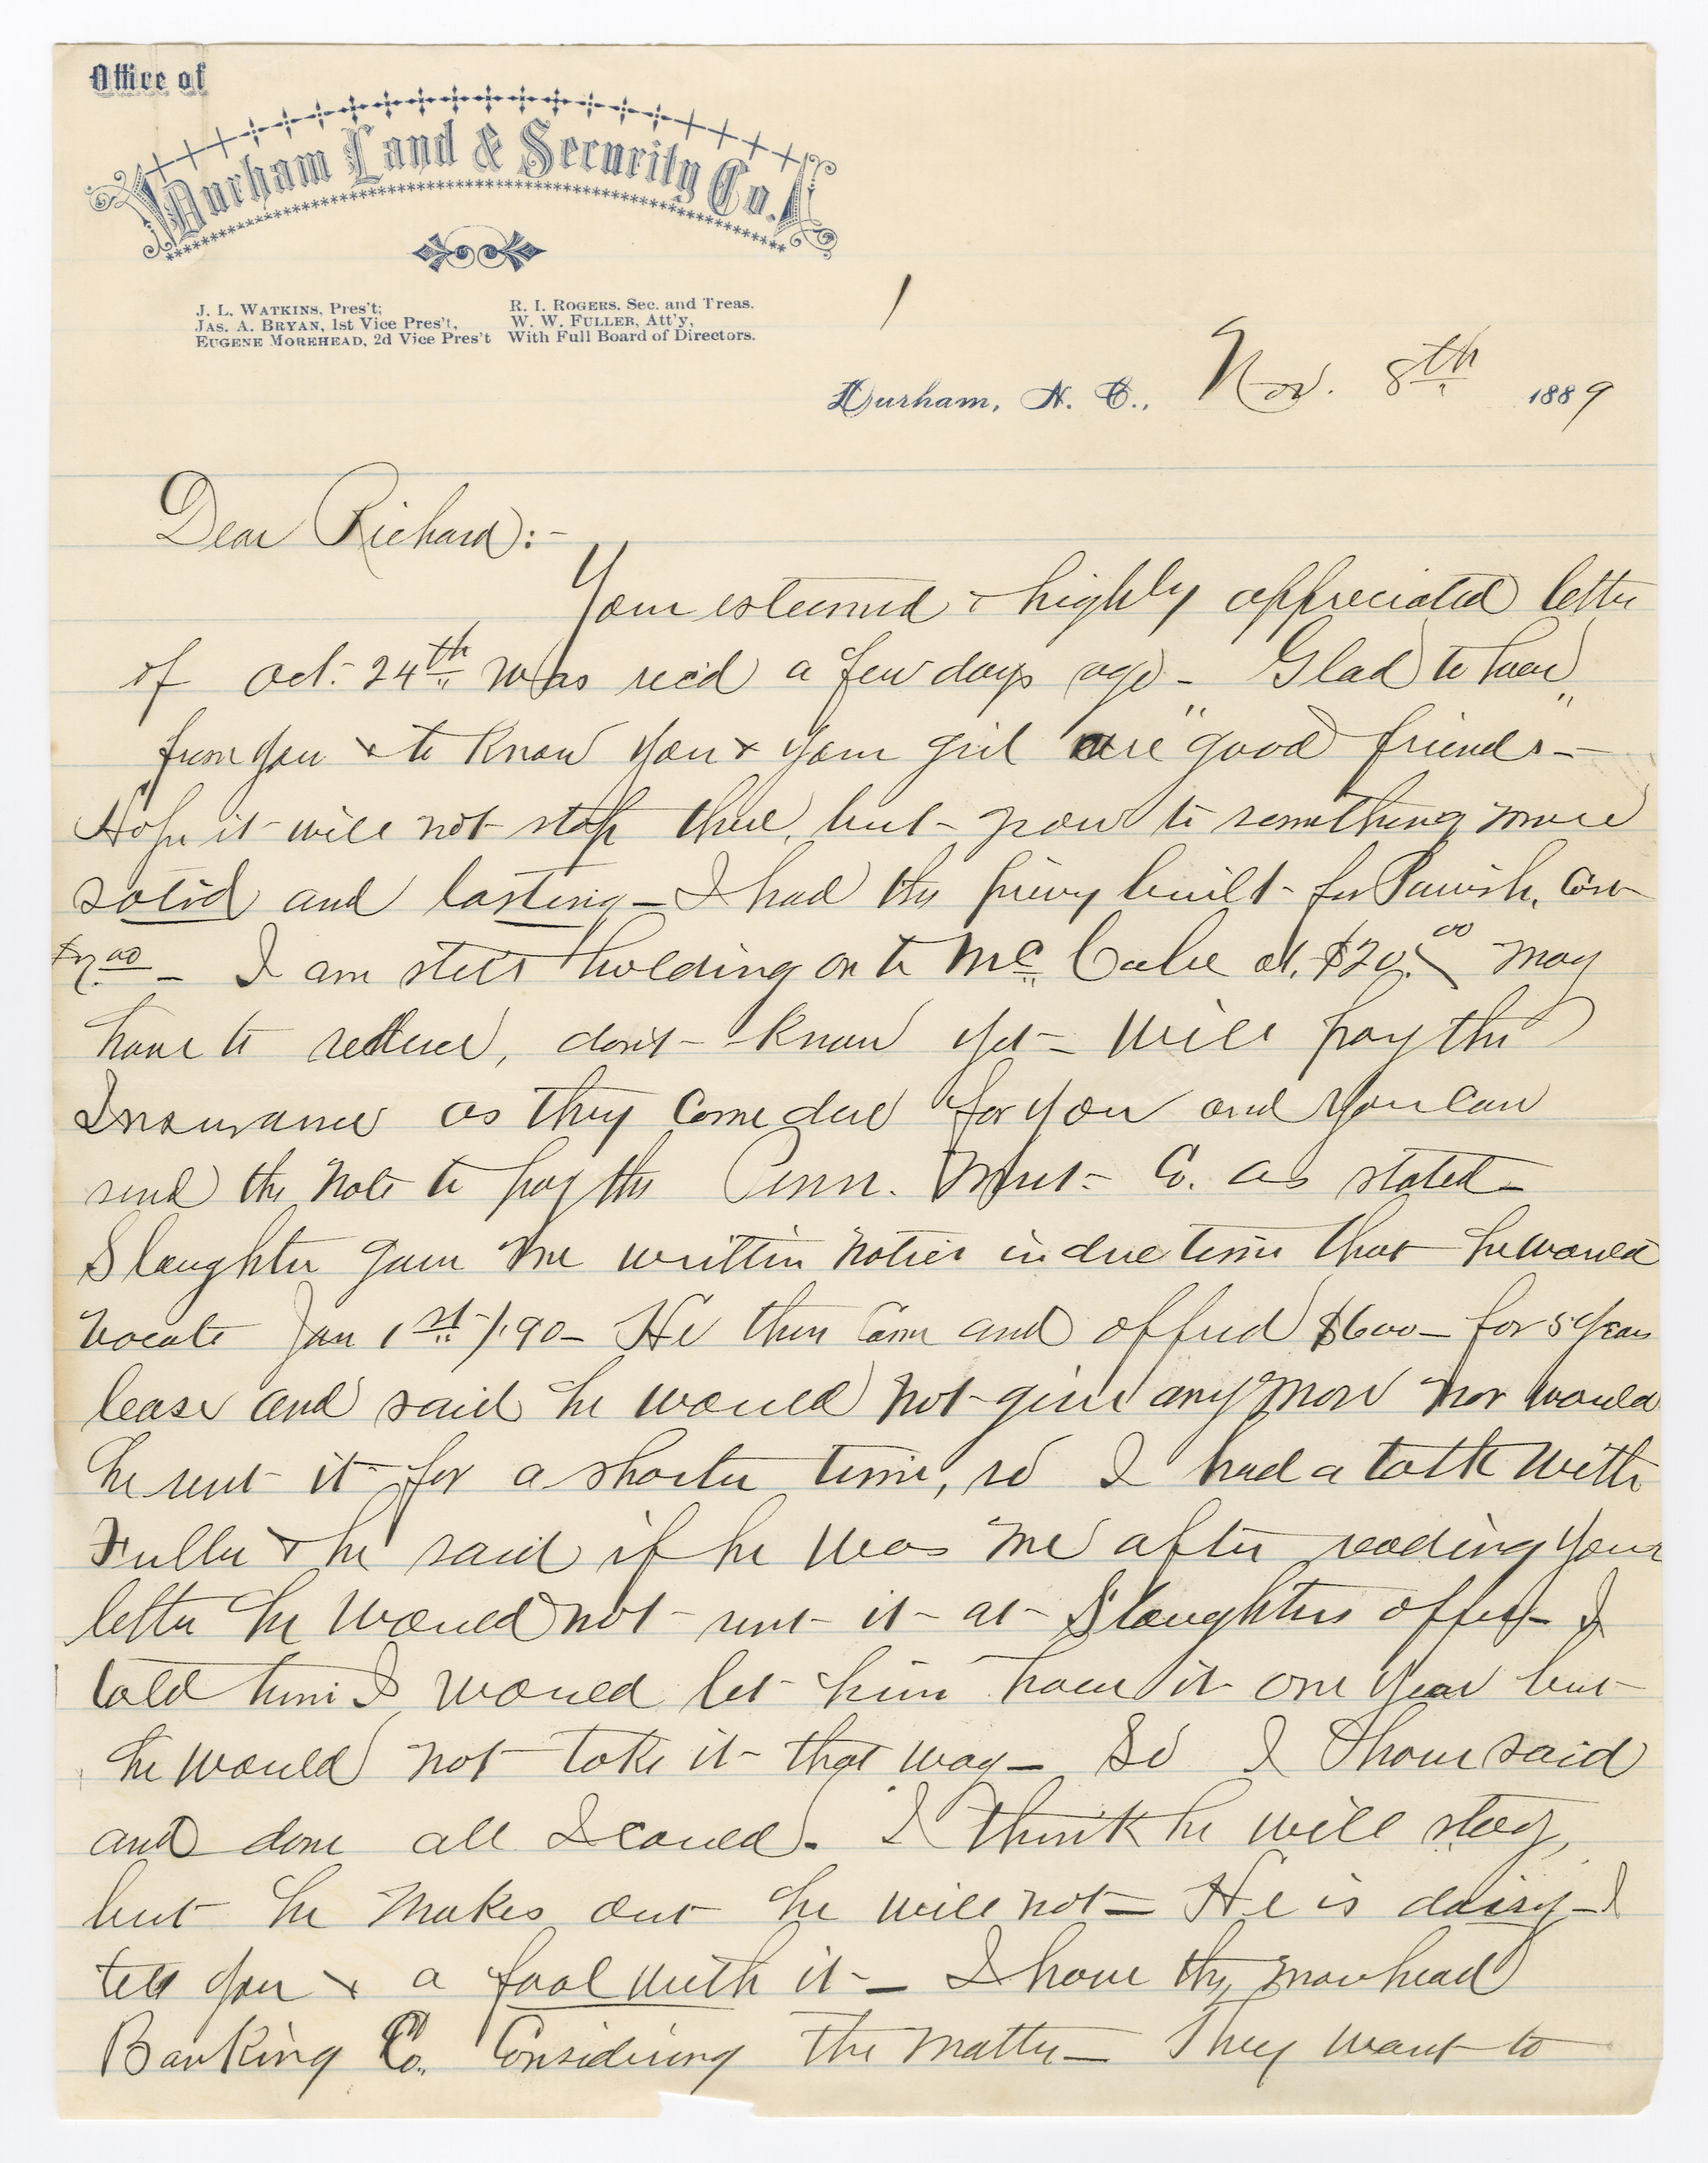 Office of
Durham Land & Security Co.
J. L. WATKINS, Pres't;
JAS. A. BRYAN, 1st Vice Pres't,
EUGENE MOREHEAD, 2d Vice Pres't
R. I. ROGERS, Sec. and Treas.
W. W. FULLER, Att'y,
With Full Board of Directors.
1
Durham, N. C., Nov. 8th 1889
Dear Richard:-
Your esteemed & highly appreciated letter
of Oct. 24th was rec'd a few days ago - Glad to hear
from you & to know you & your girl are "good friends" -
Hope it will not stop there, but grow to something more
solid and lasting - I had the privy built for Parrish, Cost
$7.00 - I am still holding on to McCabe at $20.00 may
have to reduce, don't know yet - Will pay the
Insurance as they come due for you and you can
send the note to pay the Penn. Mut. Co. as stated -
Slaughter gave me written notice in due time that he would
vacate Jan 1st /90 - He then came and offred $600 - for 5 years
lease and said he would not give any more nor would
he rent it for a shorter time, so I had a talk with
Fuller & he said if he was me after reading your
letter he would not rent it at Slaughters offer - I
told him I would let him have it one year but
he would not take it that way - So I have said
and done all I could. I think he will stay,
but he makes out he will not - He is daisy - I
tell you & a fool with it - I have the Morehead
Banking Co. Considering the matter - They want to